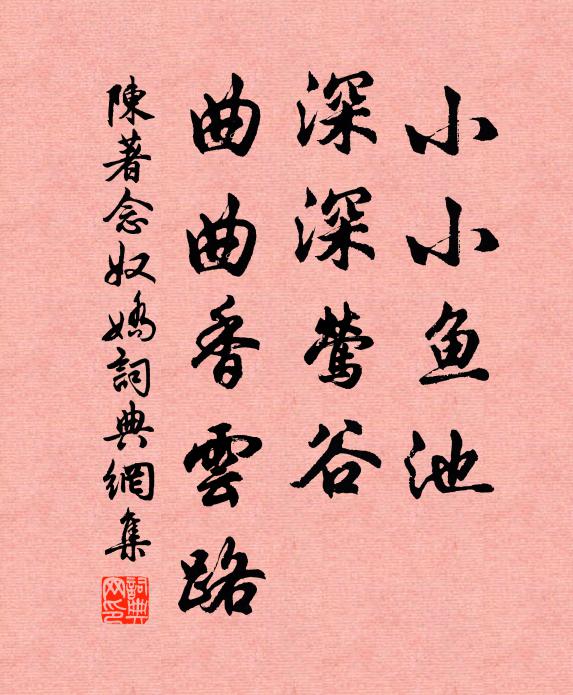 小小鱼池
深深莺谷
曲曲香雲路
陳著念奴嬌詞典網集
詞典网印